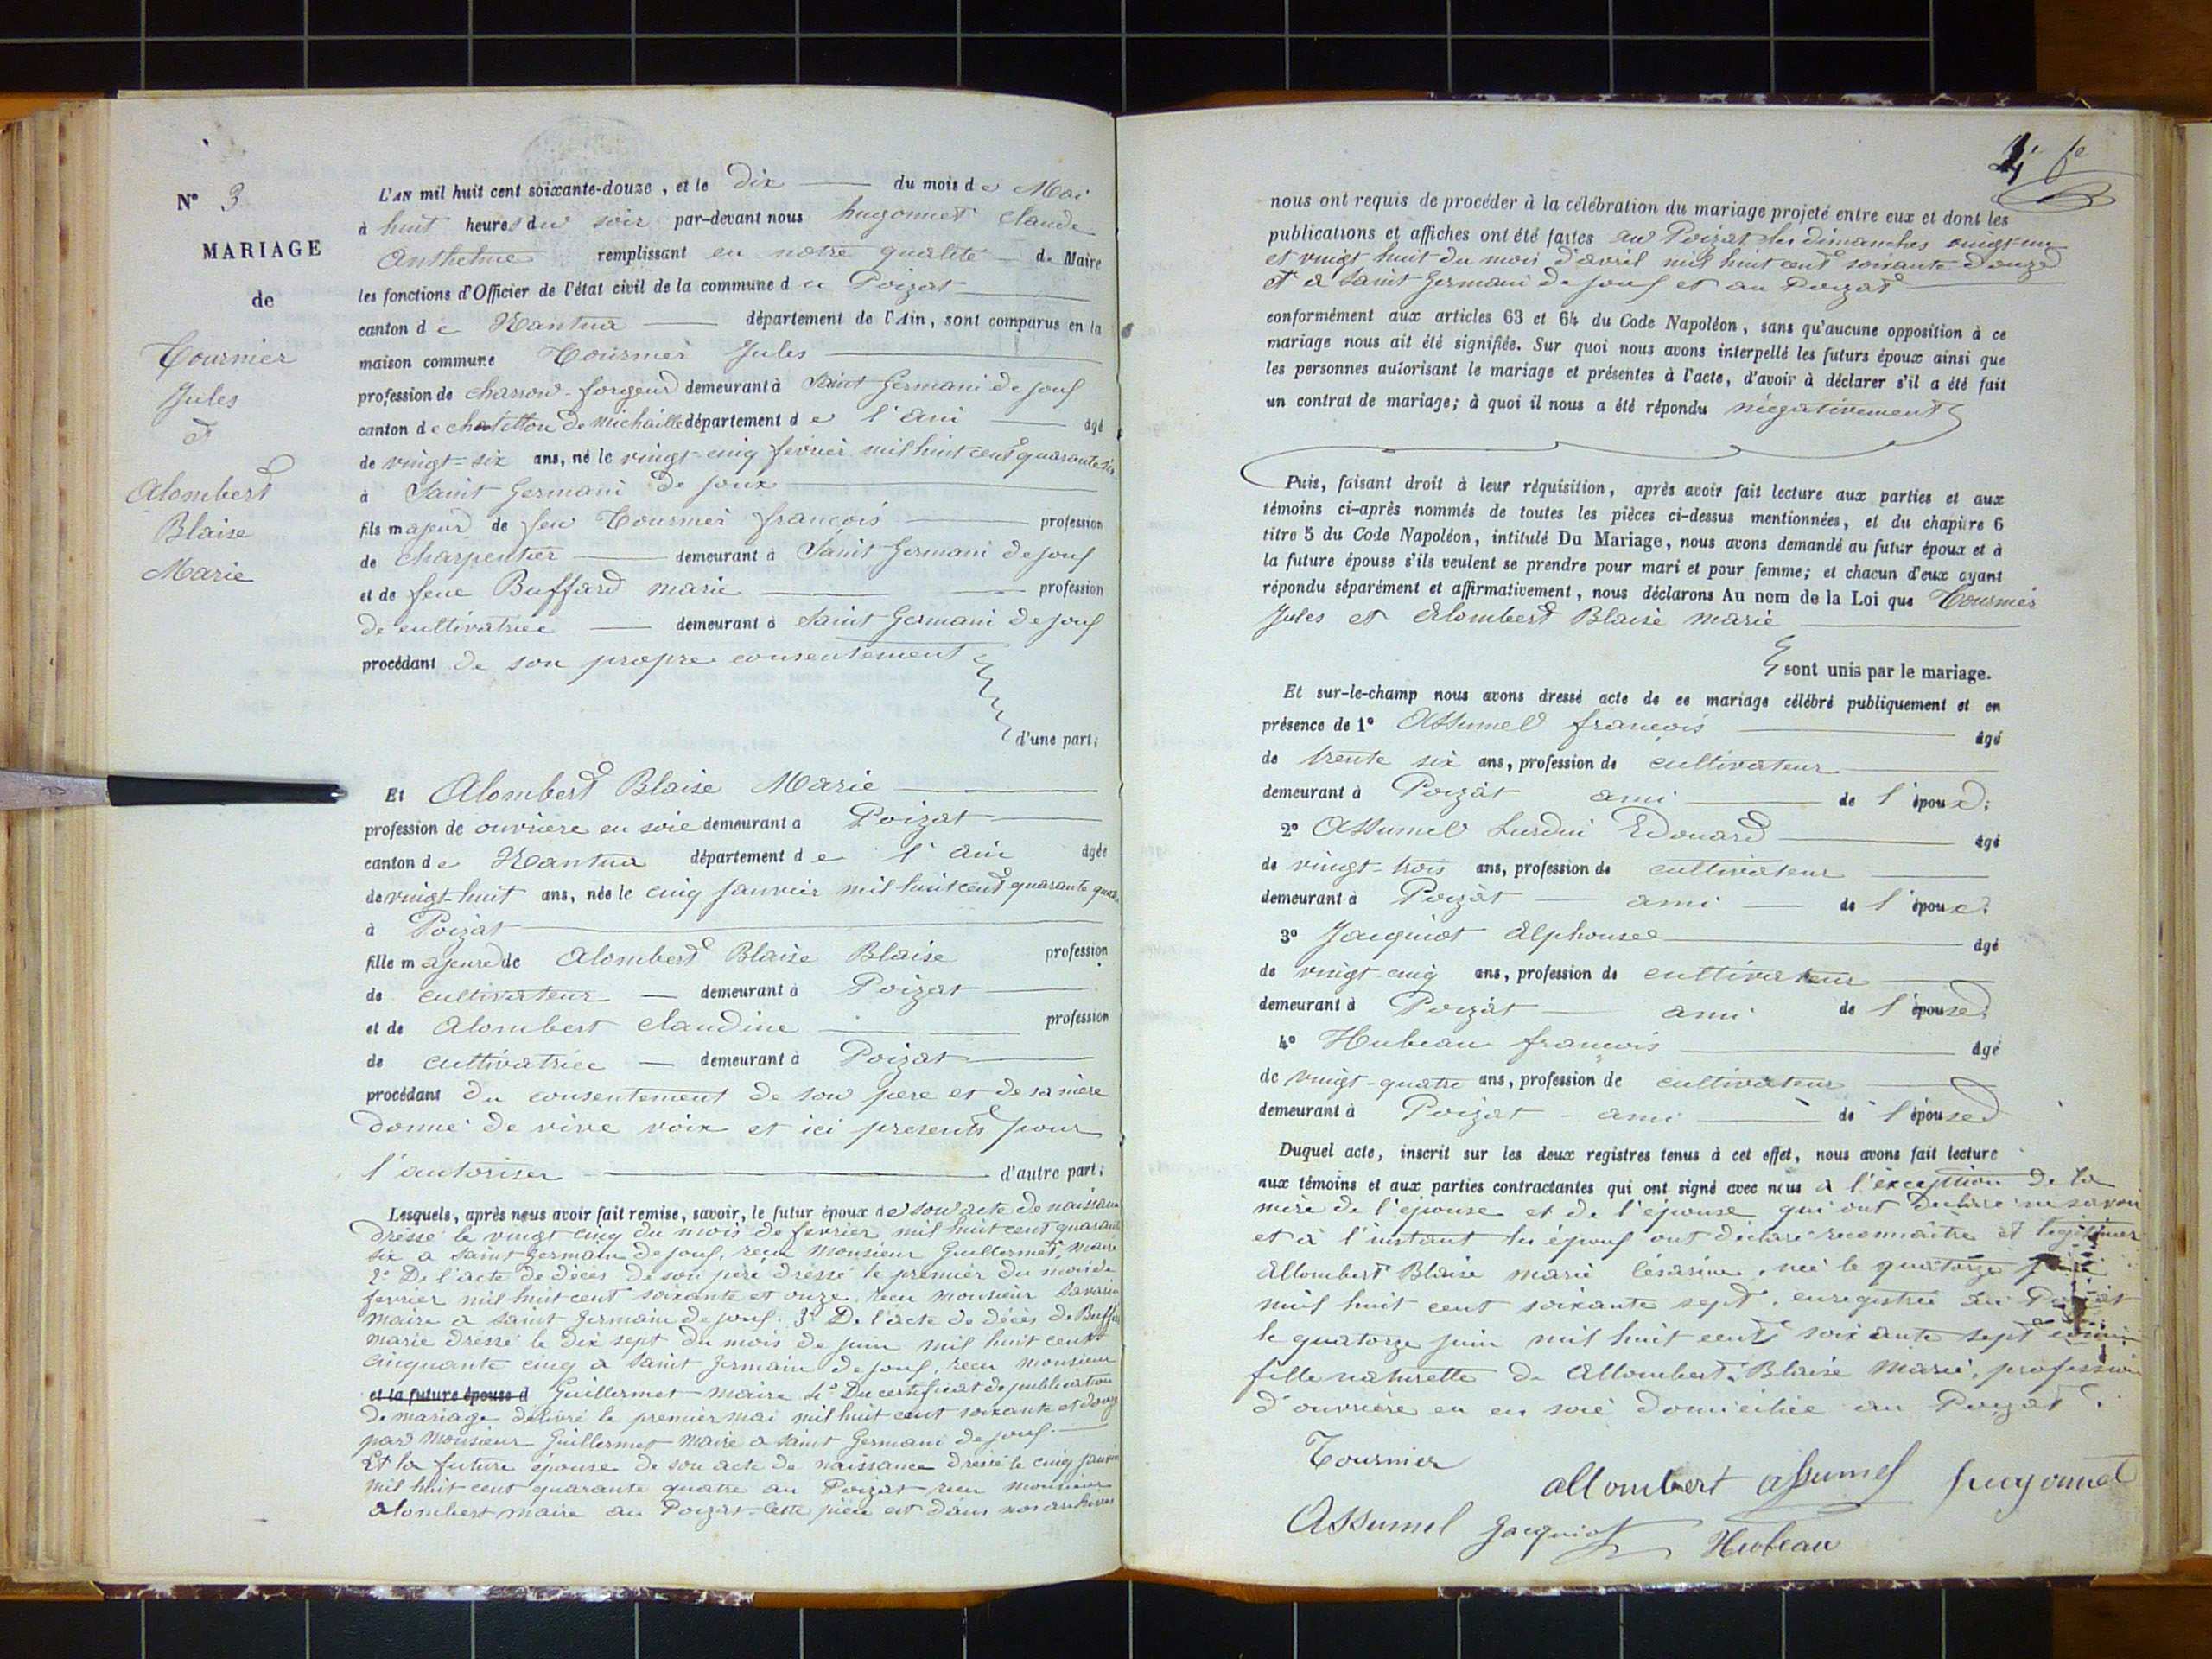 N° 3
MARIAGE
de
Tournier
Jules
et
Alombert
Blaise
Marie
L'AN mil huit cent soixante-douze, et le dix du mois de Mai
à huit heures du soir par-devant nous hugonnet Claude
Anthelme remplissant en notre qualité de Maire
les fonctions d'Officier de l'état civil de la commune du Poizat
canton de Nantua département de l'Ain, sont comparus en la
maison commune Tournier Jules
profession de charron-forgeur demeurant à Saint Germain de Joux
canton de chatillon de Michaille département de l'Ain âgé
de vingt-six ans, né le vingt-cinq février mil huit cent quarante six
à Saint Germain de Joux
fils majeur de feu Tournier françois profession
de charpentier demeurant à Saint Germain de joux
et de feue Buffard marie profession
de cultivatrice demeurant à Saint Germain de joux
procédant de son propre consentement
d'une part;
Et Alombert Blaise Marie
profession de ouvrière en soie demeurant à Poizat
canton de Nantua département de l'Ain âgée
de vingt-huit ans, née le cinq Janvier mil huit cent quarante quatre
à Poizat
fille majeure de Alombert Blaise Blaise profession
de cultivateur demeurant à Poizat
et de Alombert Claudine profession
de cultivatrice demeurant à Poizat
procédant du consentement de son père et de sa mère
donné de vive voix et ici présents pour
l'autoriser d'autre part;
Lesquels, après nous avoir fait remise, savoir, le futur époux de son acte de naissance
dressé le vingt cinq du mois de fevrier mil huit cent quarante
six a Saint Germain de joux, reçu Monsieur Guillermet, Maire
2° De l'acte de décès de son père dressé le premier du mois de
fevrier mil huit cent soixante et onze, reçu Monsieur Savarin
Maire à Saint Germain de joux. 3° De l'acte de décès de Buffard
marie dressé le dix sept du mois de juin mil huit cent
cinquante cinq à Saint Germain de joux, reçu Monsieur
et la future épouse d Guillermet Maire 4° Du certificat de publication
de mariage délivré le premier mai mil huit cent soixante et douze
par Monsieur Guillermet Maire à Saint Germain de joux.
Et la future épouse de son acte de naissance dressé le cinq janvier
mil huit cent quarante quatre au Poizat reçu Monsieur
Alombert maire au Poizat. Cette pièce est dans nos archives
nous ont requis de procéder à la célébration du mariage projeté entre eux et dont les
publications et affiches ont été faites au Poizat les dimanches vingt-un
et vingt huit du mois d'avril mil huit cent soixante douze
et à Saint Germain de joux et au Poizat
conformément aux articles 63 et 64 du Code Napoléon, sans qu'aucune opposition à ce
mariage nous ait été signifiée. Sur quoi nous avons interpellé les futurs époux ainsi que
les personnes autorisant le mariage et présentes à l'acte, d'avoir à déclarer s'il a été fait
un contrat de mariage; à quoi il nous a été répondu négativement
Puis, faisant droit à leur réquisition, après avoir fait lecture aux parties et aux
témoins ci-après nommés de toutes les pièces ci-dessus mentionnées, et du chapitre 6
titre 5 du Code Napoléon, intitulé Du Mariage, nous avons demandé au futur époux et à
la future épouse s'ils veulent se prendre pour mari et pour femme; et chacun d'eux ayant
répondu séparément et affirmativement, nous déclarons Au nom de la Loi que Tournier
Jules et Alombert Blaise Marie
sont unis par le mariage.
Et sur-le-champ nous avons dressé acte de ce mariage célébré publiquement et en
présence de 1° Assumel françois âgé
de trente six ans, profession de cultivateur
demeurant à Poizat ami de l'époux;
2° Assumel Lurdin Edouard âgé
de vingt-trois ans, profession de cultivateur
demeurant à Poizat ami de l'époux
3° Jacquiot Alphonse âgé
de vingt cinq ans, profession de cultivateur
demeurant à Poizat ami de l'épouse
4° Hubeau françois âgé
de vingt-quatre ans, profession de cultivateur
demeurant à Poizat - ami de l'épouse
Duquel acte, inscrit sur les deux registres tenus à cet effet, nous avons fait lecture
aux témoins et aux parties contractantes qui ont signé avec nous à l'exception de la
mère de l'épouse et de l'épouse qui ont déclaré ne savoir
et à l'instant les époux ont déclaré reconnaître et légitimer
Allombert Blaise marie Césarine, née le quatorze
mil huit cent soixante sept, enregistrée au Poizat
le quatorze juin mil huit cent soixante sept comme
fille naturelle de Allombert Blaise Marie, profession
d'ouvrière en en soie domiciliée au Poizat.
Tournier
allombert assumel hugonnet
Assumel Jacquiot Hubeau